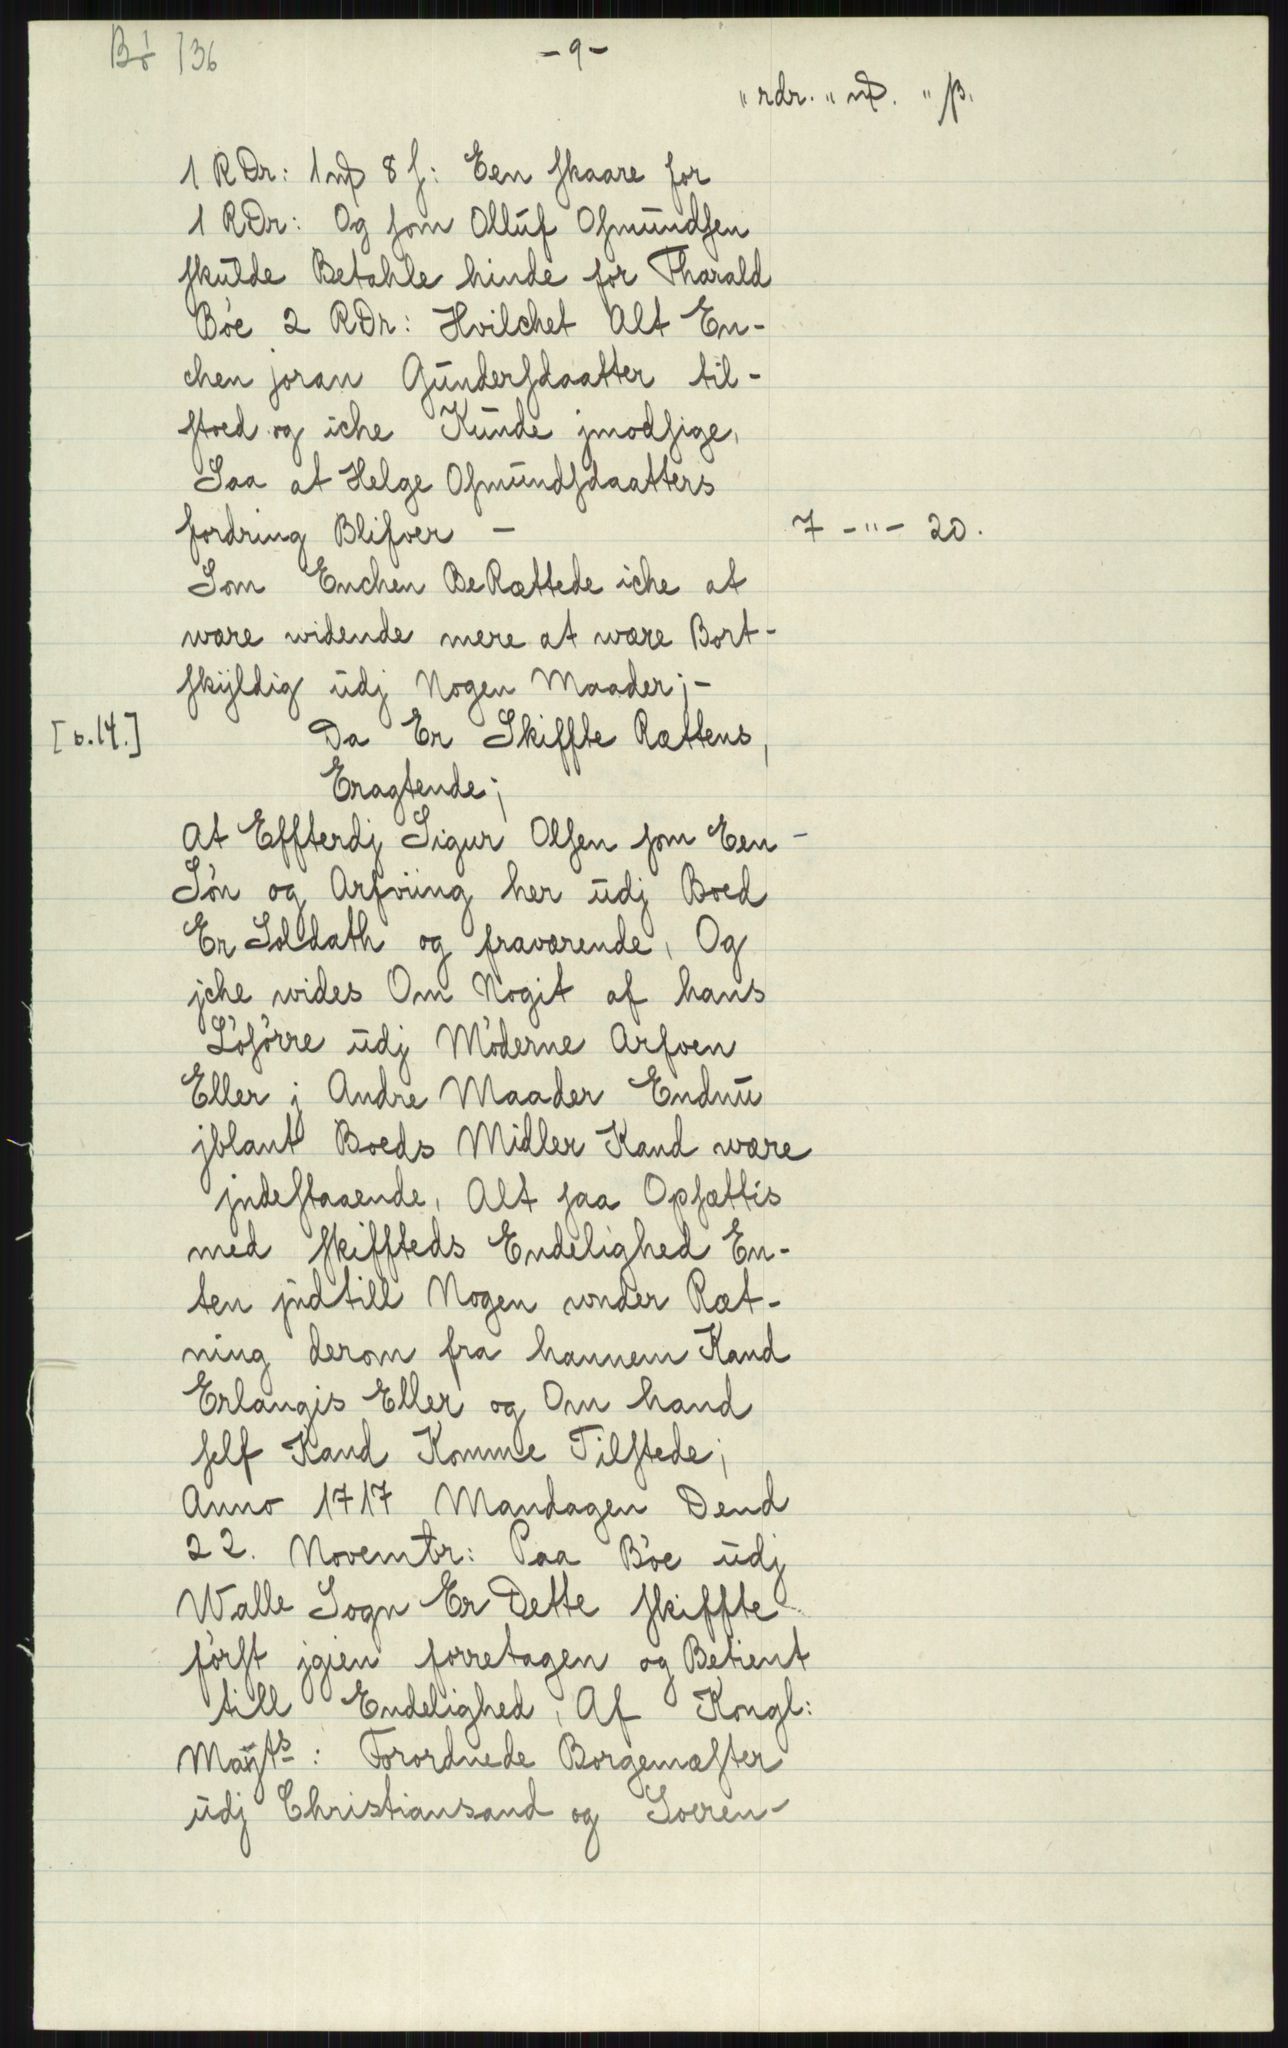 Bø 1/36
- 9 -
" rdr. " mþ. " ß.
1 RDr: 1 mþ 8 ſ: Een ſkaare for
1 RDr: Og ſom Olluf Oſmundſen
ſkulde Betahle hinde for Tharald
Böe 2 RDr: Hvilchet Alt En-
chen joran Gunderſdaatter til-
ſtoed og iche Kunde jmodſige,
Saa at Helge Oſmundſdaatters
fordring Blifver - 7 - " - 20.
Som Enchen BeRættede iche at
være widende mere at være Bort-
ſkÿldig udj Nogen Maader; -
[b.14.] Da Er Skiffte Rættens,
Eragtende;
At Effterdj Sigur Olſen ſom Een -
Sön og Arfviing her udj Boed
Er Soldath og fraværende, Og
jche wides Om Nogit af hans
Löſörre udj Möderne Arfven
Eller j Andre Maader Endnu
jblant Boeds Midler Kand være
jndeſtaaende, Alt ſaa Opſættis
med ſkiffteds Endelighed En-
ten jndtill Nogen vnder Ræt-
ning derom fra hannem Kand
Erlangis Eller og Om hand
ſelf Kand Komme Tilſtede;
Anno 1717 Mandagen Dend
22. Novembr: Paa Böe udj
Walle Sogn Er Dette ſkiffte
förſt jgien forretagen og Betient
till Endelighed, Af Kongl:
Maÿts: Forordnede Borgemæſter
udj Christiansand og Soeren-